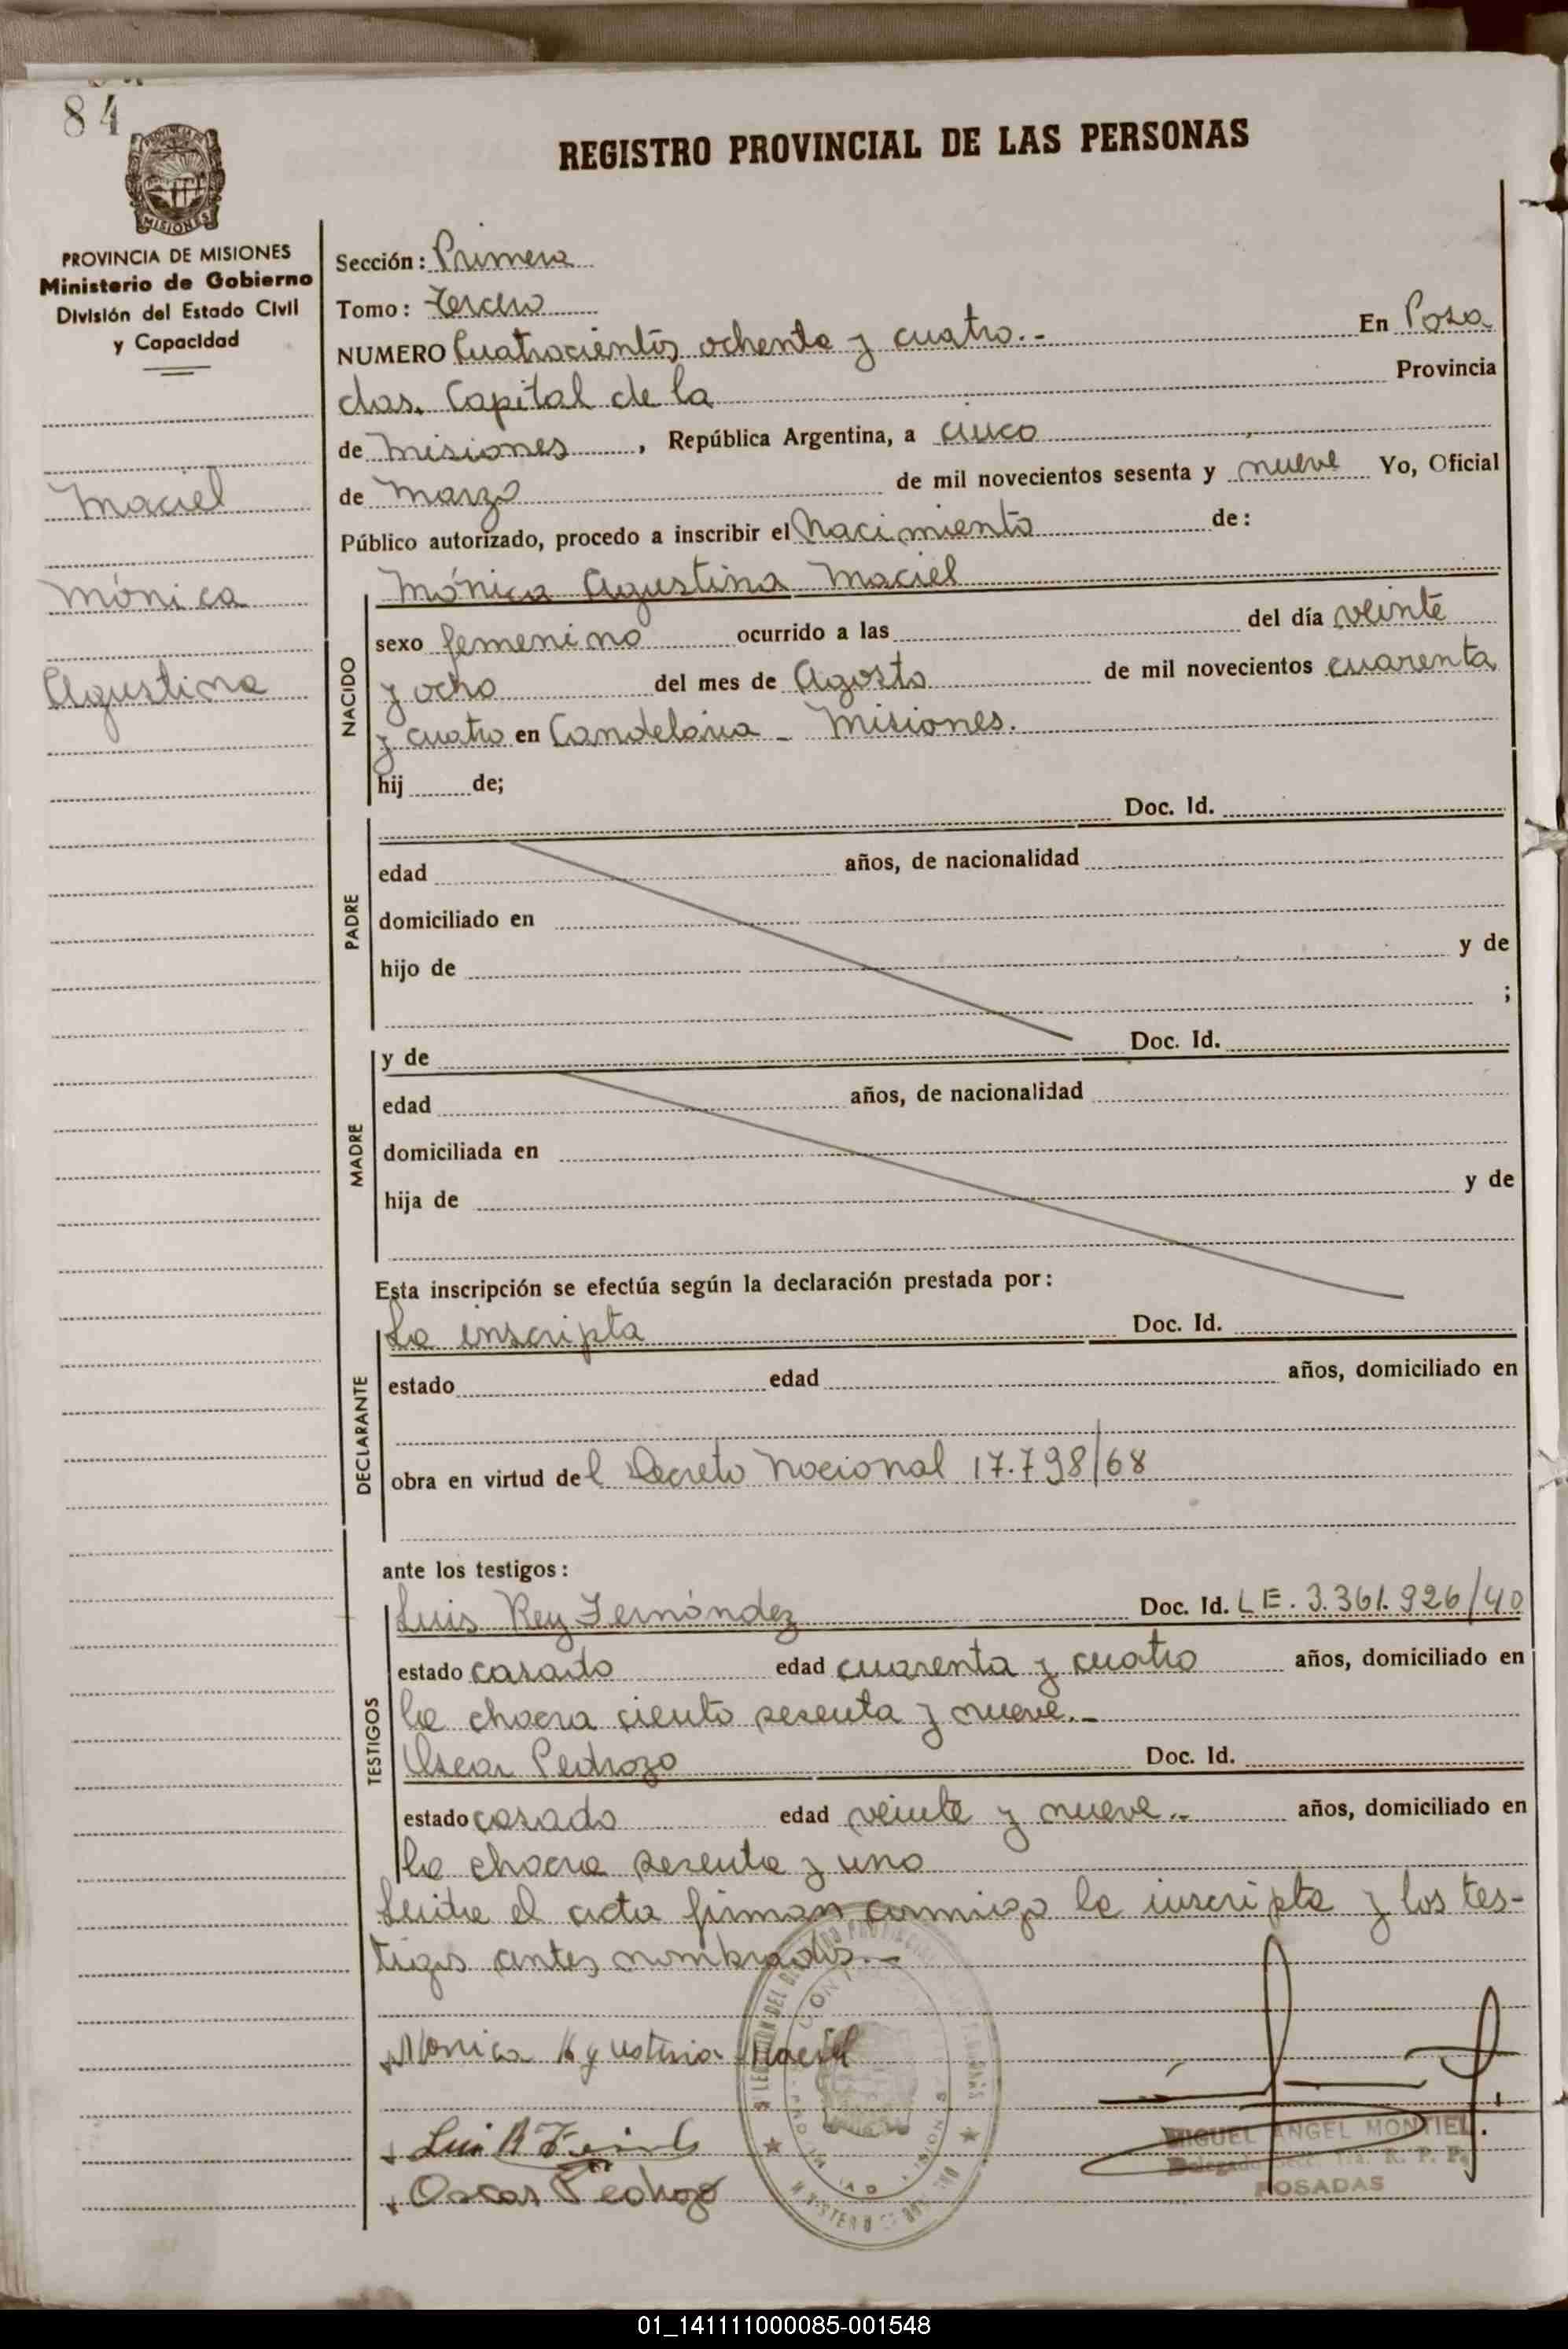 84
REGISTRO PROVINCIAL DE LAS PERSONAS
MISIONES
PROVINCIA DE MISIONES
Ministerio de Gobierno
División del Estado Civil
y Capacidad
Maciel
Mónica
Agustina
Sección: Primera
Tomo: Tercero
NUMERO Cuatrocientos ochenta y cuatro.- En Posa
das, Capital de la Provincia
de Misiones, República Argentina, a cinco
de Marzo de mil novecientos sesenta y nueve Yo, Oficial
Público autorizado, procedo a inscribir el Nacimiento de:
NACIDO
Mónica Agustina Maciel
sexo femenino ocurrido a las del día veinte
y ocho del mes de Agosto de mil novecientos cuarenta
y cuatro en Candelaria - Misiones.
hij de;
PADRE
Doc. Id.
edad años, de nacionalidad
domiciliado en
hijo de y de
;
MADRE
y de Doc. Id.
edad años, de nacionalidad
domiciliada en
hija de y de
Esta inscripción se efectúa según la declaración prestada por:
DECLARANTE
La enscripta Doc. Id.
estado edad años, domiciliado en
obra en virtud del Decreto Nacional 17.798/68
ante los testigos:
TESTIGOS
Luis Rey Fernández Doc. Id. L E. 3.361.926/40
estado casado edad cuarenta y cuatro años, domiciliado en
la chacra ciento sesenta y nueve.-
Oscar Pedrozo Doc. Id.
estado casado edad veinte y nueve.- años, domiciliado en
la chacra sesenta y uno
Leída el acta firman conmigo la inscripta y los tes-
tigos antes nombrados.-
Monica Agustina Maciel
Oscar Pedrozo
MIGUEL ANGEL MONTIEL
R. P. P.
POSADAS
01_141111000085-001548